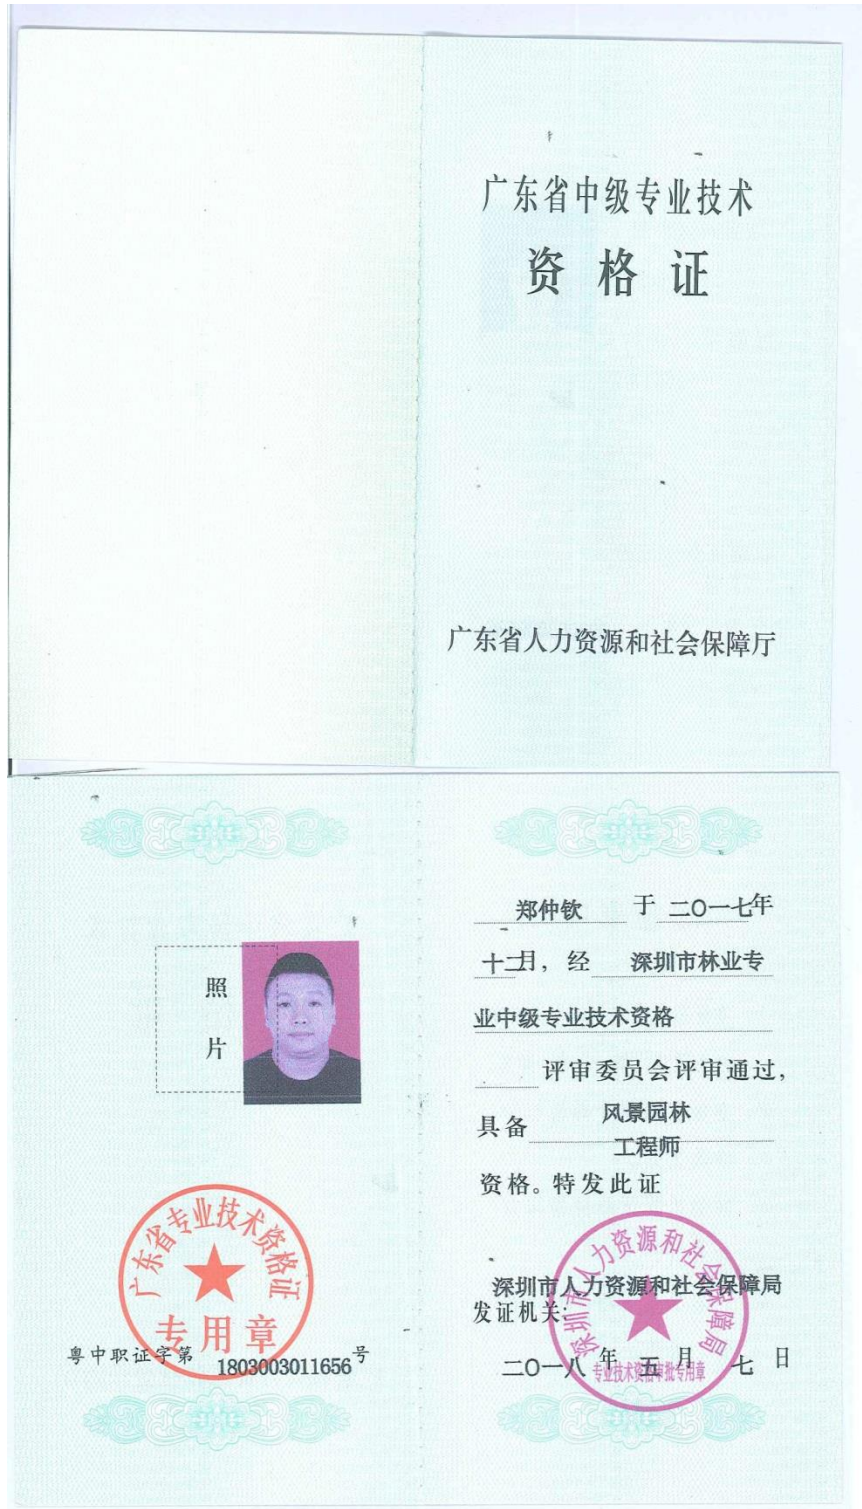 广东省中级专业技术
资格证
广东省人力资源和社会保障厅
照
片
广东省专业技术资格证
专用章
粤中职证字第 1803003011656 号
郑仲钦 于 二〇一七年
十二月，经 深圳市林业专
业中级专业技术资格
评审委员会评审通过，
具备 风景园林
工程师
资格。特发此证
深圳市人力资源和社会保障局
发证机关：
深圳市人力资源和社会保障局
专业技术资格审批专用章
二〇一八年 五 月 七 日